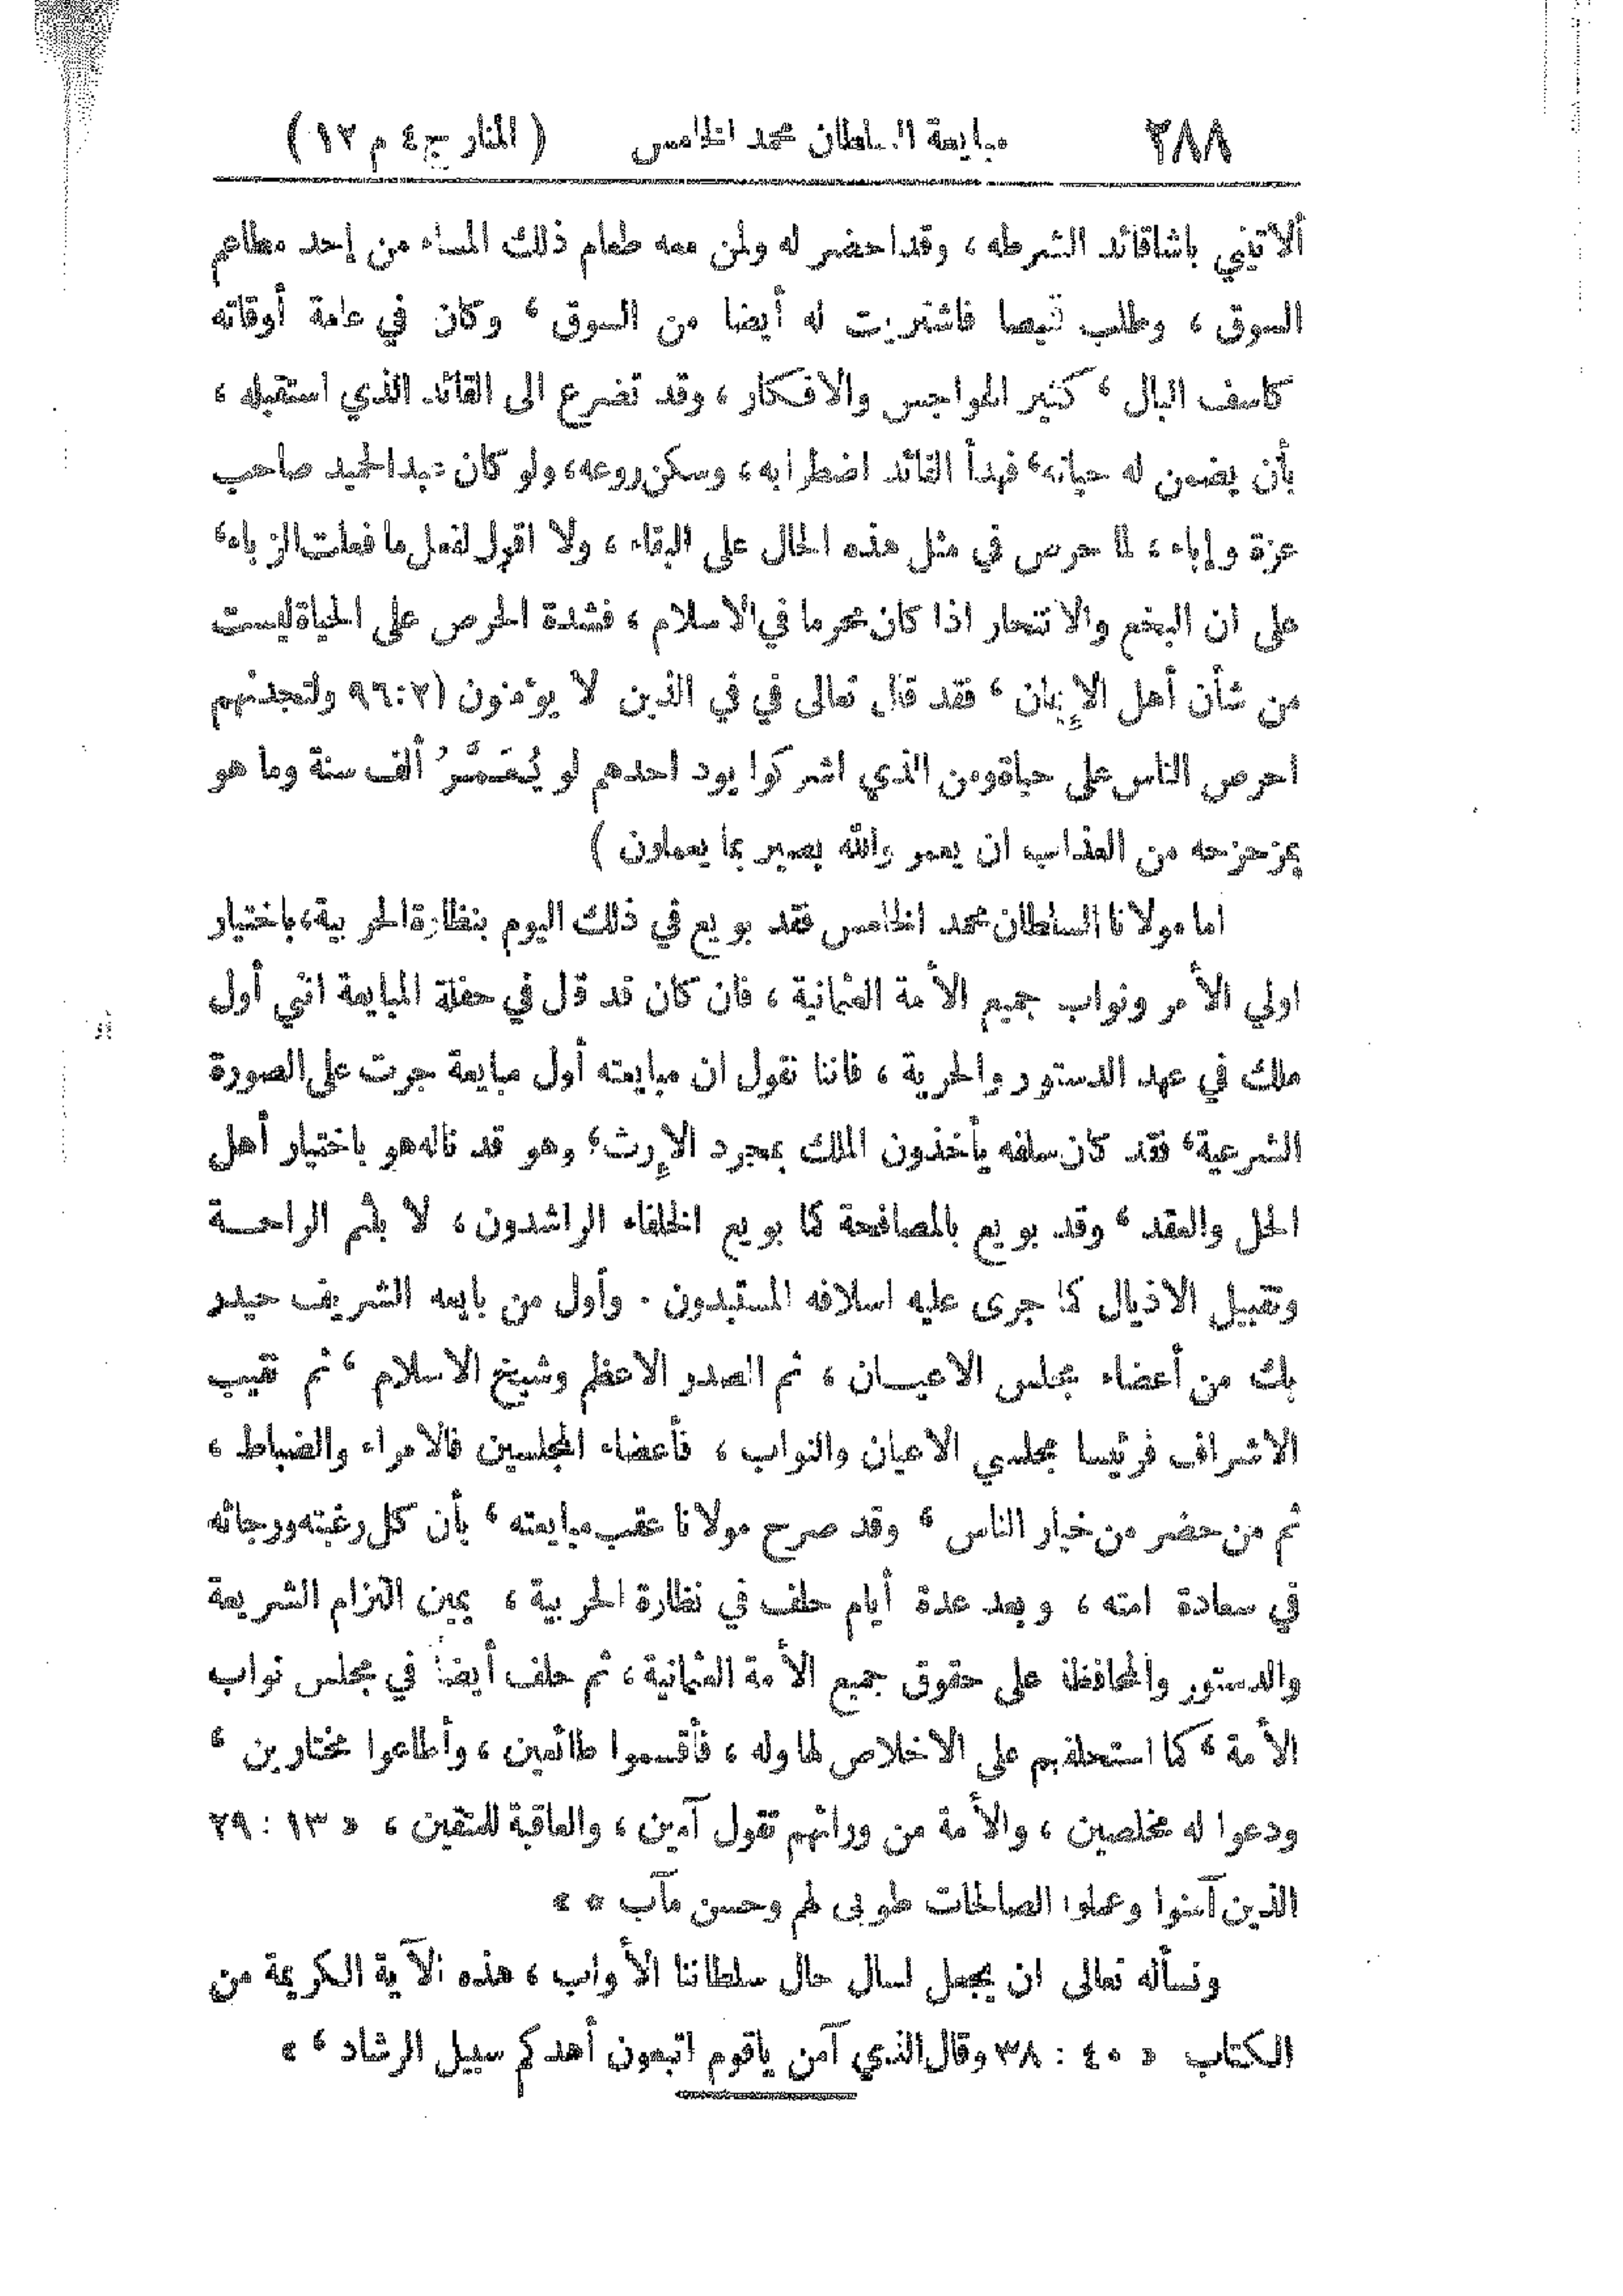 ٢٨٨ مبايعة السلطان محمد الخامس ( المنار ج ٤ م ١٢ )
ألاتيني باشا قائد الشرطه ، وقد احضر له ولمن معه طعام ذلك المساء من إحد مطاعم
السوق ، وطلب قميصا فاشتريت له أيضا من السوق ، وكان في عامة أوقاته
كاسف البال ، كثير الهواجس والافكار ، وقد تضرع الى القائد الذي استقبله ،
بأن يضمن له حياته ، فهدأ القائد اضطرابه ، وسكن روعه ، ولو كان عبد الحميد صاحب
عزة وإباء ، لما حرص في مثل هذه الحال على البقاء ، ولا اقول لفعل ما فعلت الزباء ،
على ان البخع والانتحار اذا كان محرما في الاسلام ، فشدة الحرص على الحياة ليست
من شأن أهل الإيمان ، فقد قال تعالى في في الذين لا يؤمنون (٩٦:٢ ولتجدنهم
احرص الناس على حياة ومن الذي اشركوا يود احدهم لو يُعَمَّرُ ألف سنة وما هو
بمزحزحه من العذاب ان يعمر والله بصير بما يعملون )
اما مولانا السلطان محمد الخامس فقد بويع في ذلك اليوم بنظارة الحربية ، باختيار
اولي الأمر ونواب جميع الأمة العثمانية ، فان كان قد قال في حفلة المبايعة انني أول
ملك في عهد الدستور والحرية ، فاننا نقول ان مبايعته أول مبايعة جرت على الصورة
الشرعية ، فقد كان سلفه يأخذون الملك بمجرد الإرث ، وهو قد ناله هو باختيار أهل
الحل والعقد ، وقد بويع بالمصافحة كما بويع الخلفاء الراشدون ، لا بلثم الراحة
وتقبيل الاذيال كما جرى عليه اسلافه المستبدون . وأول من بايعه الشريف حيدر
بك من أعضاء مجلس الاعيان ، ثم الصدر الاعظم وشيخ الاسلام ، ثم نقيب
الاشراف فرئيسا مجلسي الاعيان والنواب ، فأعضاء المجلسين فالامراء والضباط ،
ثم من حضر من خيار الناس ، وقد صرح مولانا عقب مبايعته ، بأن كل رغبته ورجائه
في سعادة امته ، وبعد عدة أيام حلف في نظارة الحربية ، يمين التزام الشريعة
والدستور والمحافظة على حقوق جميع الأمة العثمانية ، ثم حلف أيضاً في مجلس نواب
الأمة ، كما استحلفهم على الاخلاص لها وله ، فأقسموا طائعين ، وأطاعوا مختارين ،
ودعوا له مخلصين ، والأمة من ورائهم تقول آمين ، والعاقبة للمتقين ، « ١٣ : ٢٩
الذين آمنوا وعملوا الصالحات طوبى لهم وحسن مآب * »
ونسأله تعالى ان يجعل لسال حال سلطاننا الأواب ، هذه الآية الكريمة من
الكتاب « ٤٠ : ٣٨ وقال الذي آمن ياقوم اتبعون أهدكم سبيل الرشاد ، »